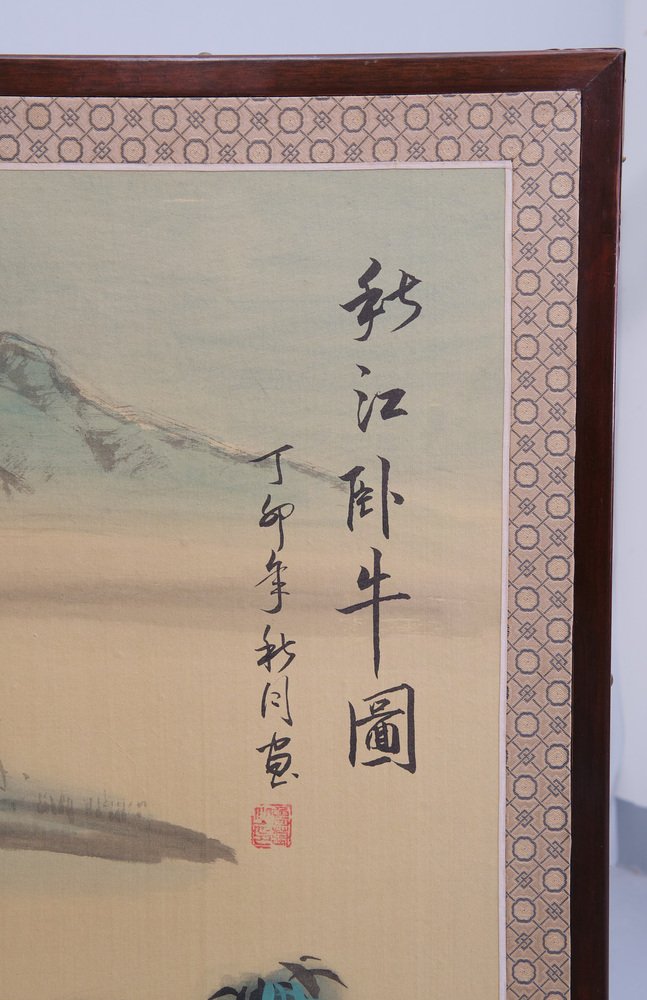 秋江卧牛圖
丁卯年秋月画